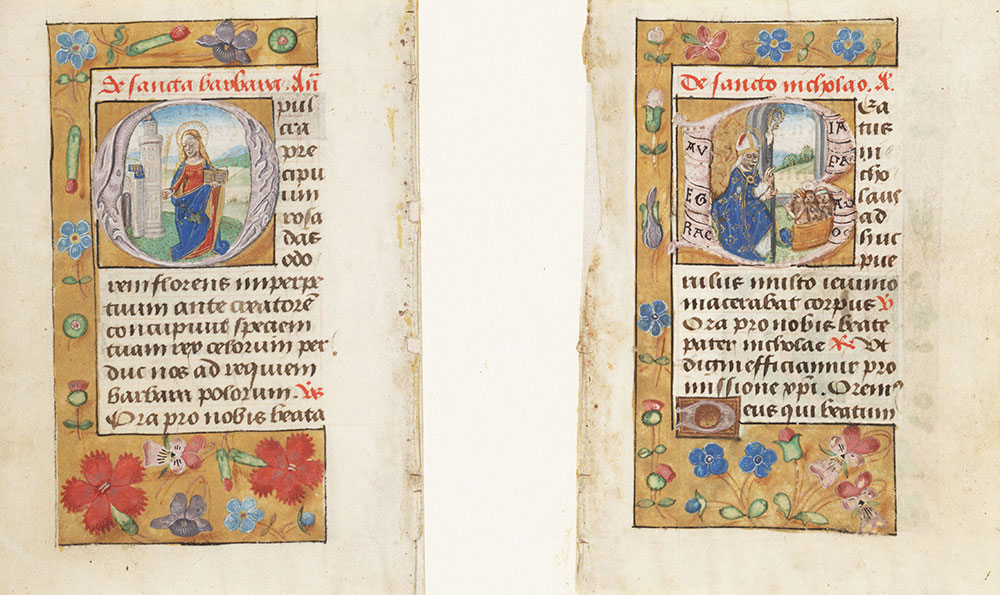 De sancta barbara. Añ
pul
cra
pre
cipu
um
rosa
das
odo
rem florens in perpe
tuum ante creatorē
concupiuit speciem
tuam rex celorum per
duc nos ad requiem
barbara polorum. V̄s
Ora pro nobis beata
De sancto nicholao. A.
Bea
tus
ni
cho
laus
ad
huc
pue
AV
EG
RAC
IA
PA
AV
OS
rulus multo ieiunio
macerabat corpus V
Ora pro nobis beate
pater nicholae R Ut
digni efficiamur pro
missione xp̄i. Orem9
Deus qui beatum